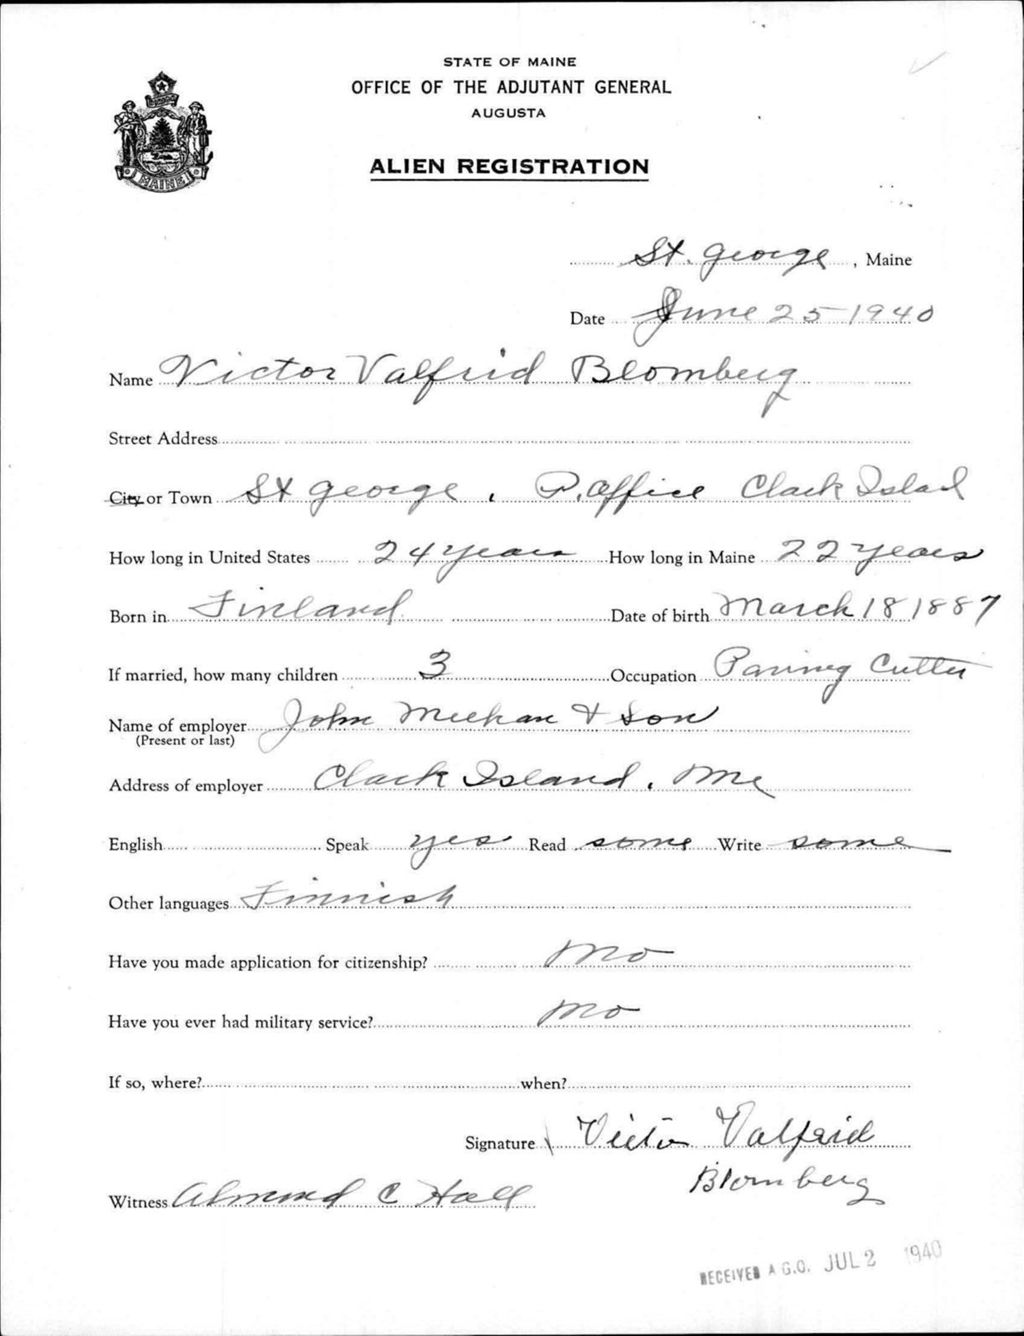 STATE OF MAINE
OFFICE OF THE ADJUTANT GENERAL
AUGUSTA
ALIEN REGISTRATION
MAINE
St. George, Maine
Date June 25 1940
Name Victor Valfrid Blomberg
Street Address
City or Town St George. P. Office Clark Islad
How long in United States 24 years How long in Maine 22 years
Born in Finland Date of birth March 18 1887
If married, how many children 3 Occupation Paving Cutter
Name of employer John Meehan & Son
(Present or last)
Address of employer Clark Island. Me
English Speak yes Read some Write some
Other languages Finnish
Have you made application for citizenship? No
Have you ever had military service? No
If so, where? when?
Signature Victor Valfrid
Blomberg
Witness Almond C Hall
RECEIVED A.G.O. JUL 2 1940